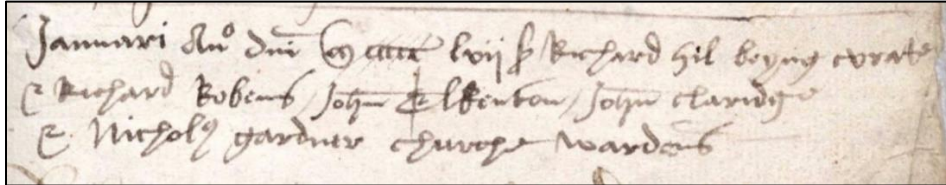 Januari Ano dni m ccccc lvii sr Richard hil beyng curate
& Richard Robens / John Elkenton / John claridge
& Nicholus gardner churche wardens